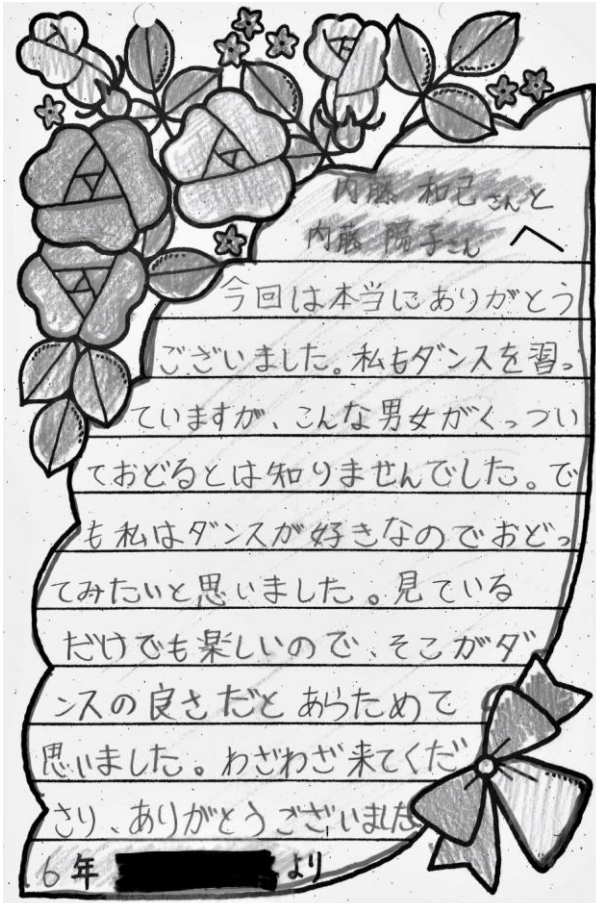 内藤 和己さんと
内藤 陽子さん へ
今回は本当にありがとう
ございました。私もダンスを習っ
ていますが、こんな男女がくっつい
ておどるとは知りませんでした。で
も私はダンスが好きなのでおどっ
てみたいと思いました。見ている
だけでも楽しいので、そこがダ
ンスの良さだとあらためて
思いました。わざわざ来てくだ
さり、ありがとうございました
6年 より